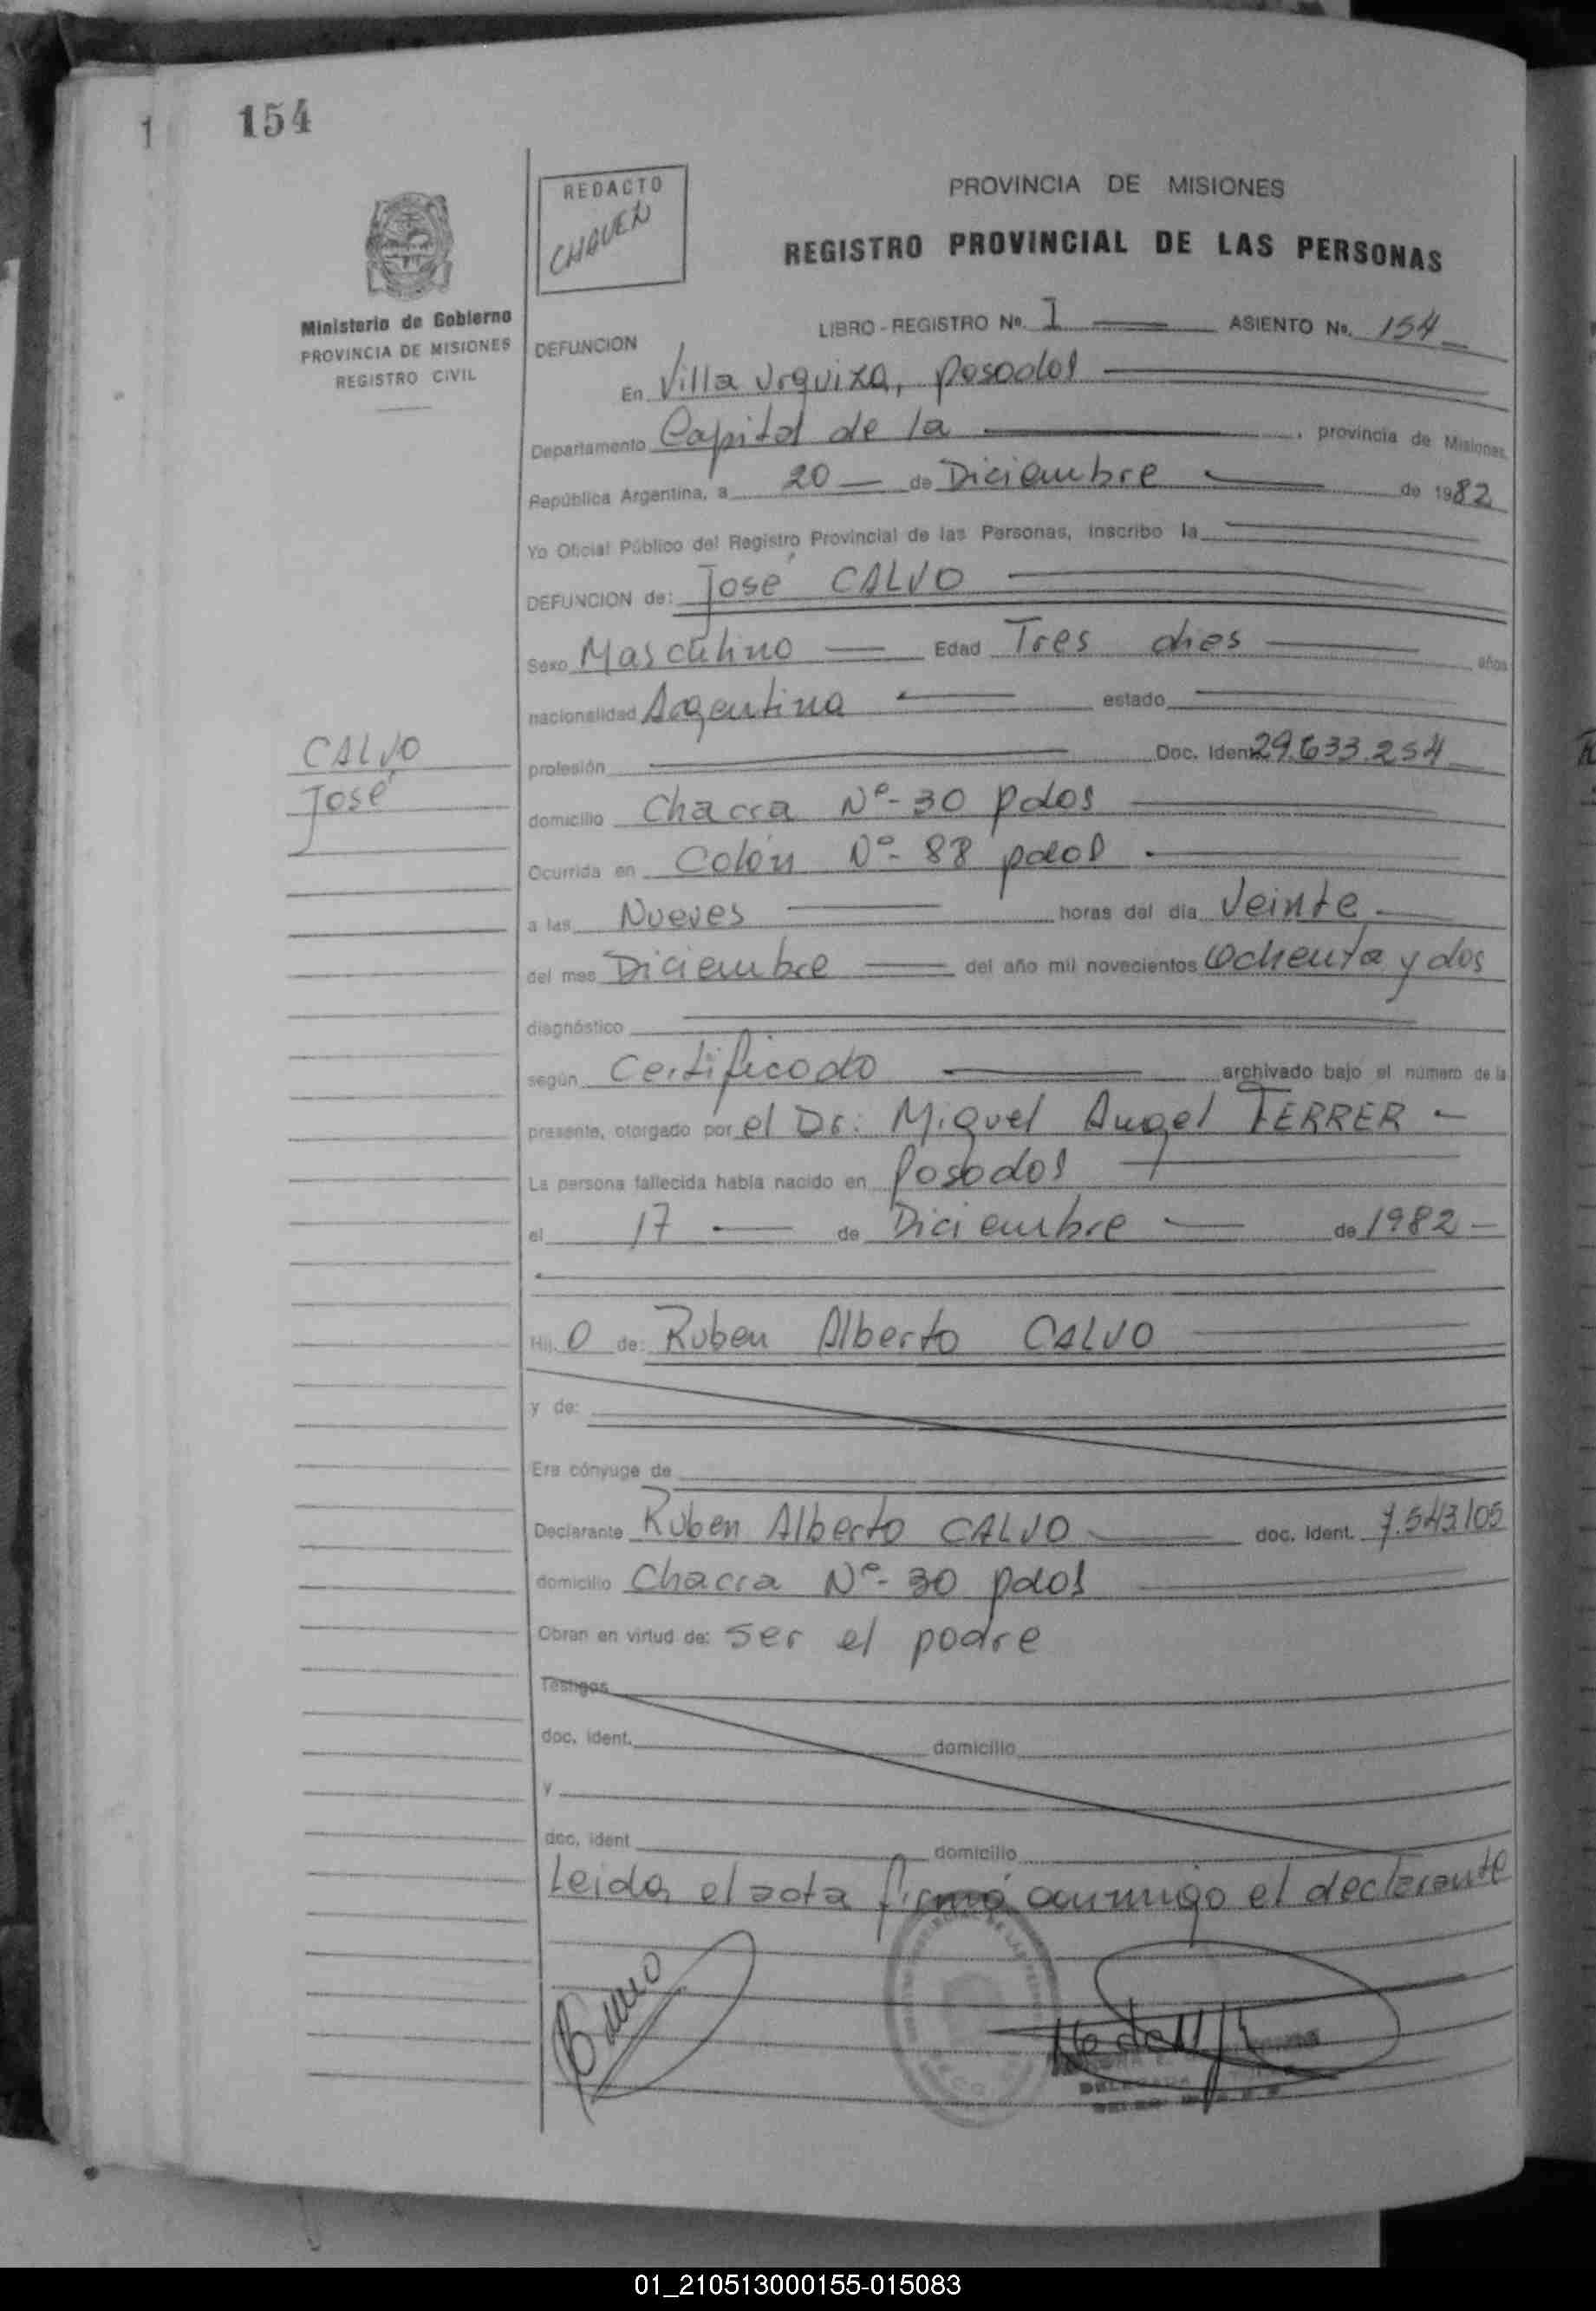 1 154
REDACTO
CHAVEZ
PROVINCIA DE MISIONES
REGISTRO PROVINCIAL DE LAS PERSONAS
Ministerio de Gobierno
PROVINCIA DE MISIONES
REGISTRO CIVIL
LIBRO - REGISTRO No. 1 ASIENTO No. 154
DEFUNCION
En Villa Urquiza, Posadas
Departamento Capital de la , provincia de Misiones,
República Argentina, a 20 de Diciembre de 1982
Yo Oficial Público del Registro Provincial de las Personas, inscribo la
DEFUNCION de: José CALVO
Sexo Masculino Edad Tres dias años
nacionalidad Argentina estado
CALVO
José
profesión Doc. Ident. 29.633.254
domicilio Chacra Nº- 30 Pdas
Ocurrida en Colón Nº- 88 pdas
a las Nueves horas del día Veinte
del mes Diciembre del año mil novecientos Ochenta y dos
diagnóstico
según Certificado archivado bajo el número de la
presente, otorgado por el Dr: Miguel Angel FERRER
La persona fallecida había nacido en Posadas
el 17 de Diciembre de 1982
Hij. O de: Ruben Alberto CALVO
y de:
Era cónyuge de
Declarante Ruben Alberto CALVO doc. Ident. 7.543.105
domicilio Chacra Nº- 30 pdas
Obran en virtud de: ser el padre
Testigos
doc. ident. domicilio
y
doc. ident domicilio
Leida el acta firmó conmigo el declarante
01_210513000155-015083